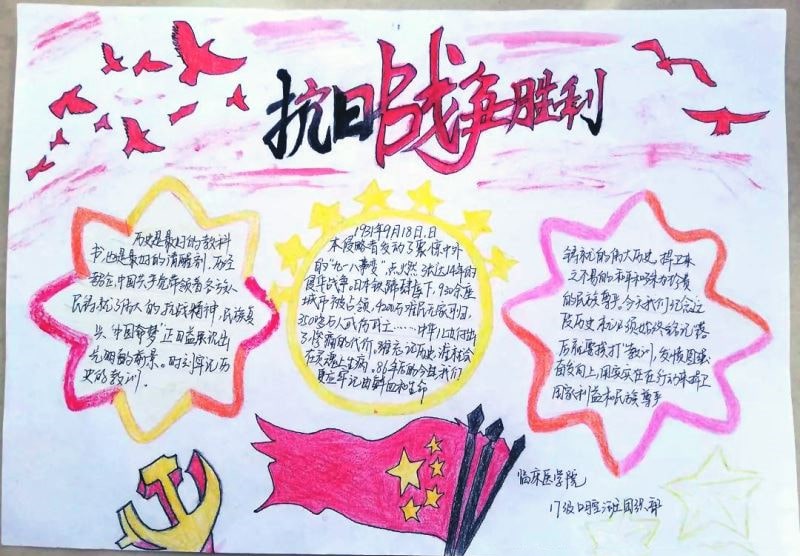 抗日战争胜利
历史是最好的教科
书,也是最好的清醒剂。历经
中国共产党带领着各族人
民铸就了伟大的抗战精神,民族复
兴、"中国梦"正日益展现出
光明的前景。时刻牢记历
史的教训.
1931年9月18日.日
本侵略者发动了震惊中外
的"九一八事变",点燃了长达14年的
侵华战争。日本铁蹄肆虐下,930余座
城市被占领,4200万难民无家可归,
3500多万人式伤死亡……中华儿女付出
了惨痛的代价。谁忘记历史,谁就会
在灵魂上生病。86年后的今天,我们
更应牢记由鲜血和生命
铸就的伟大历史,捍卫来
之不易的和平和弥加珍贵
的民族尊严。今天我们纪念这
段历史,就必须始终铭记"落
后就要挨打"教训,发愤图强
奋发向上,用实实在在行动来捍卫
国家利益和民族尊严
临床医学院
17级口腔班团组织部